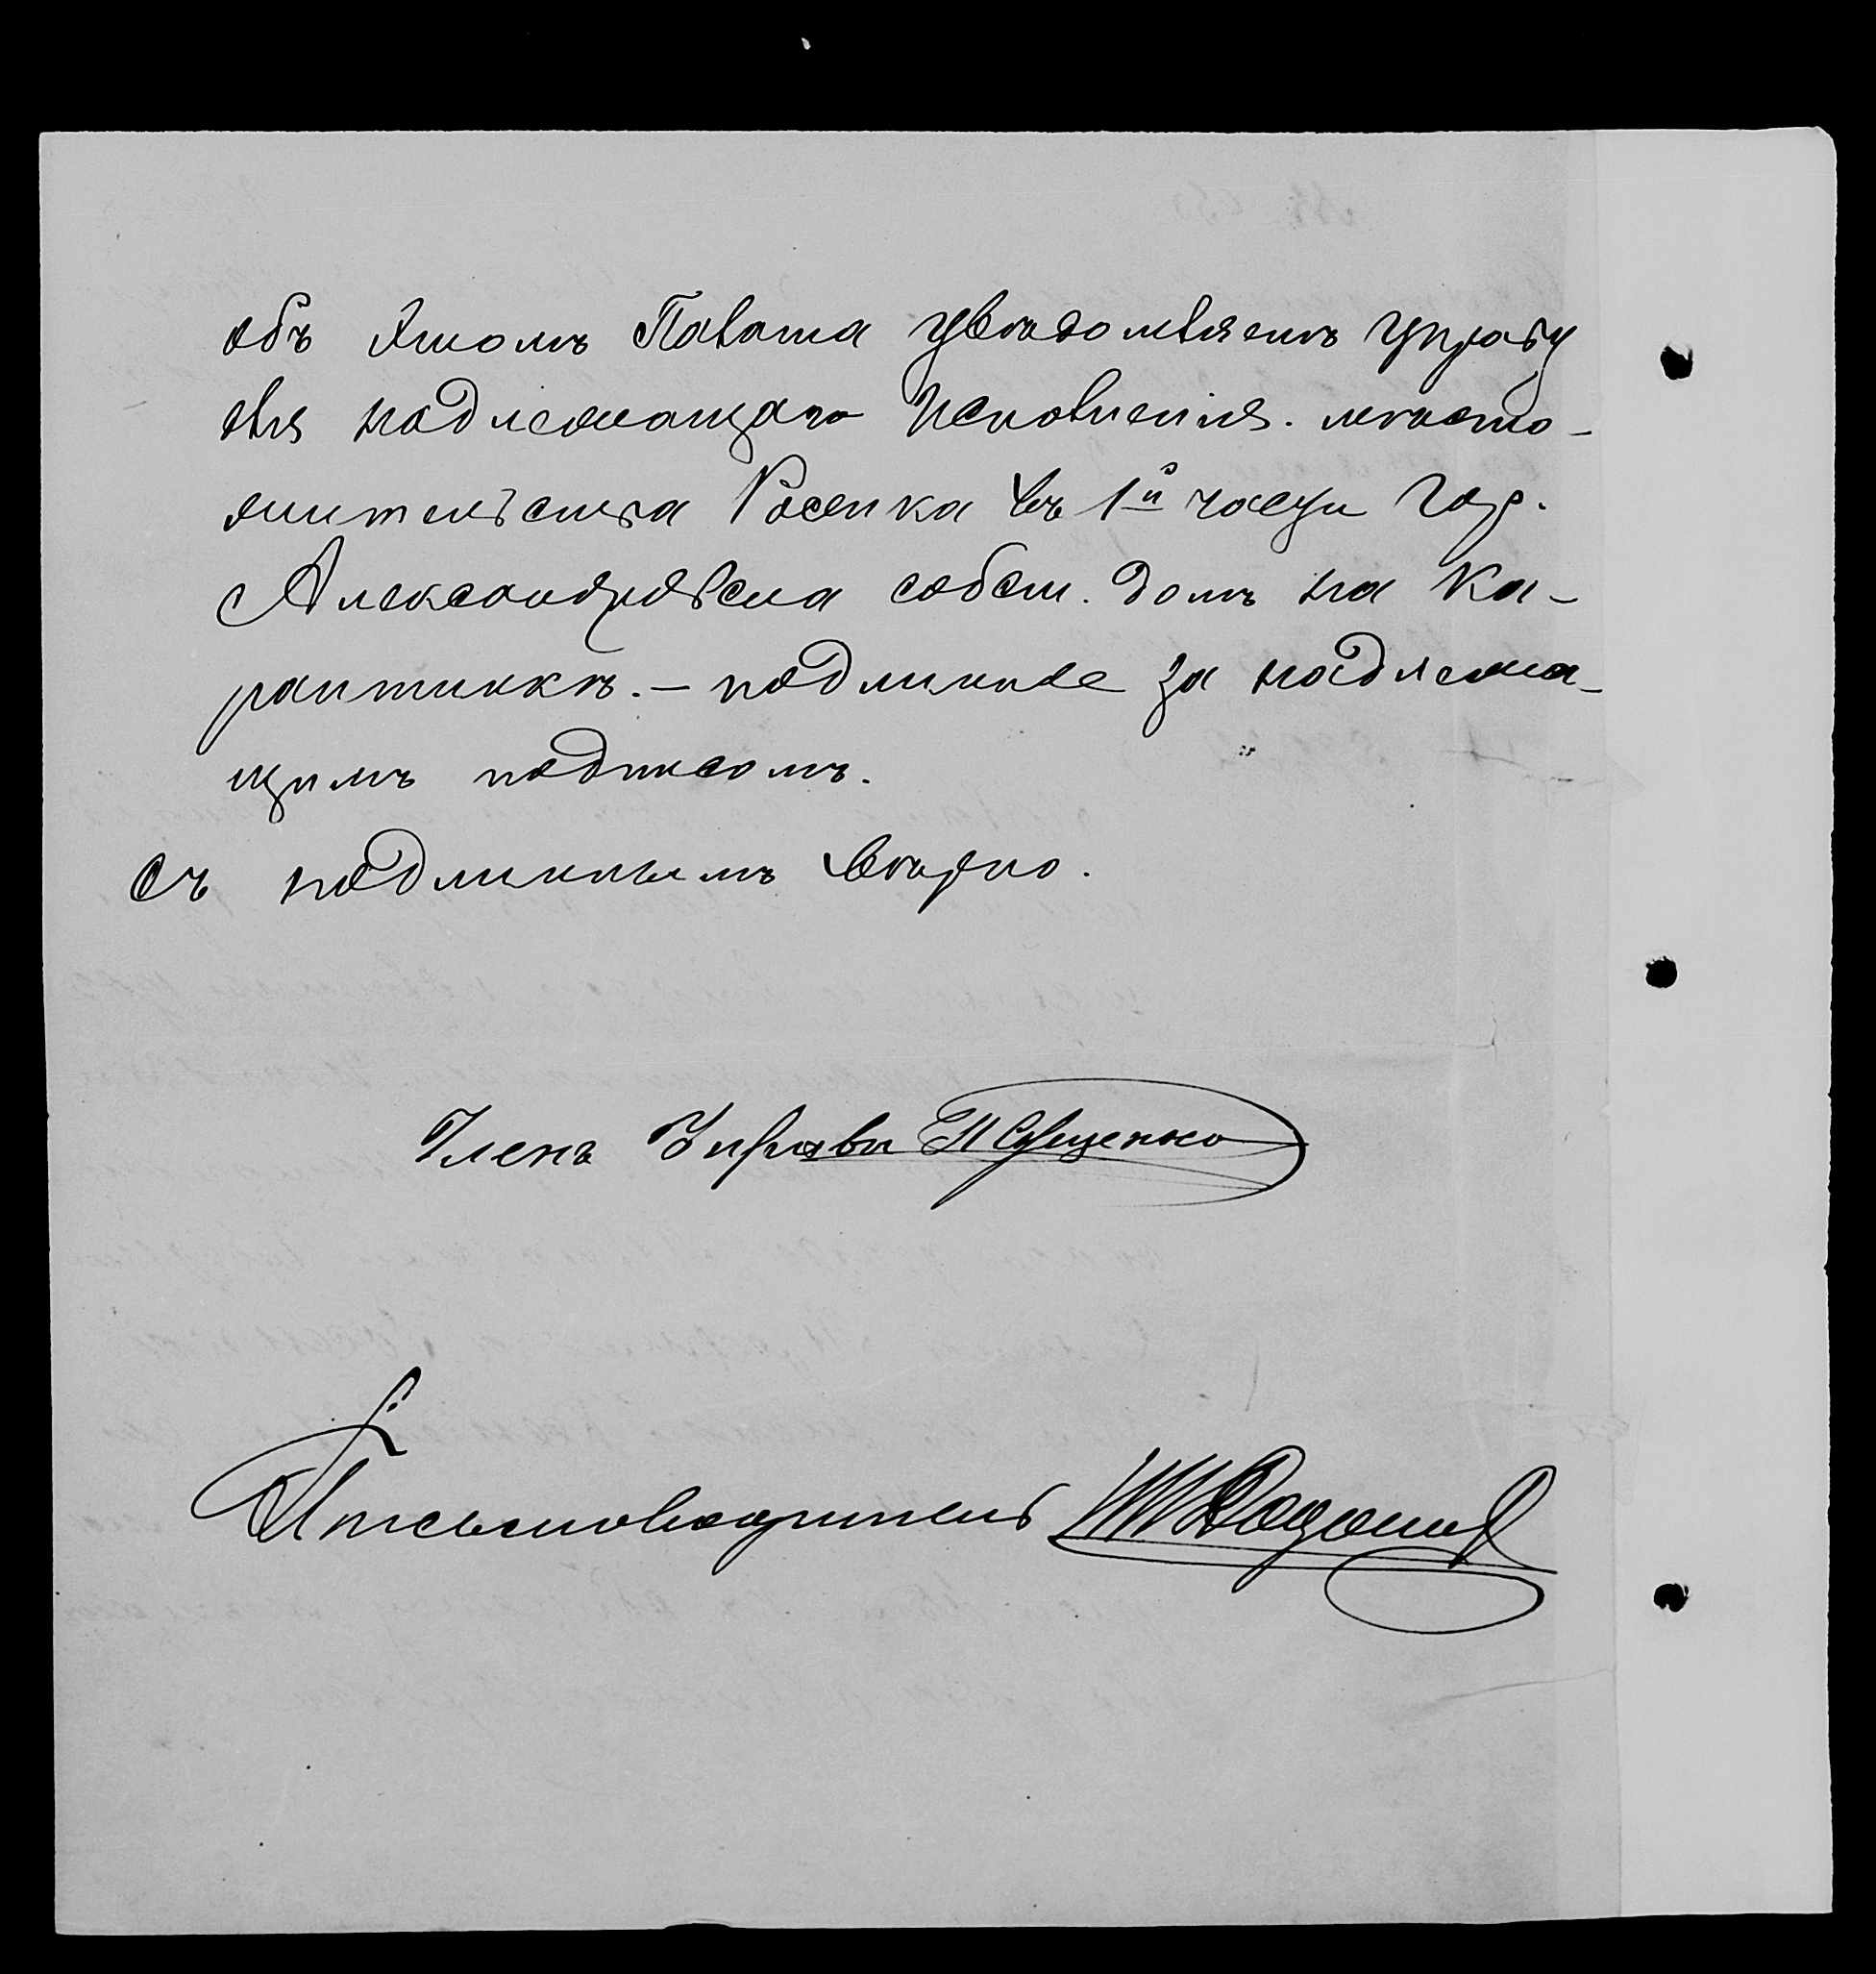 объ этомъ Палата увѣдомляетъ Управу
для надлежащаго исполненія. мѣсто-
жительства Росенка въ 1й части гор.
Александровска собст. домъ на Ка-
рантинкѣ. — подлинное за надлежа-
щимъ подписомъ.
Съ подлиннымъ вѣрно.
Членъ Управы
Письмоводитель